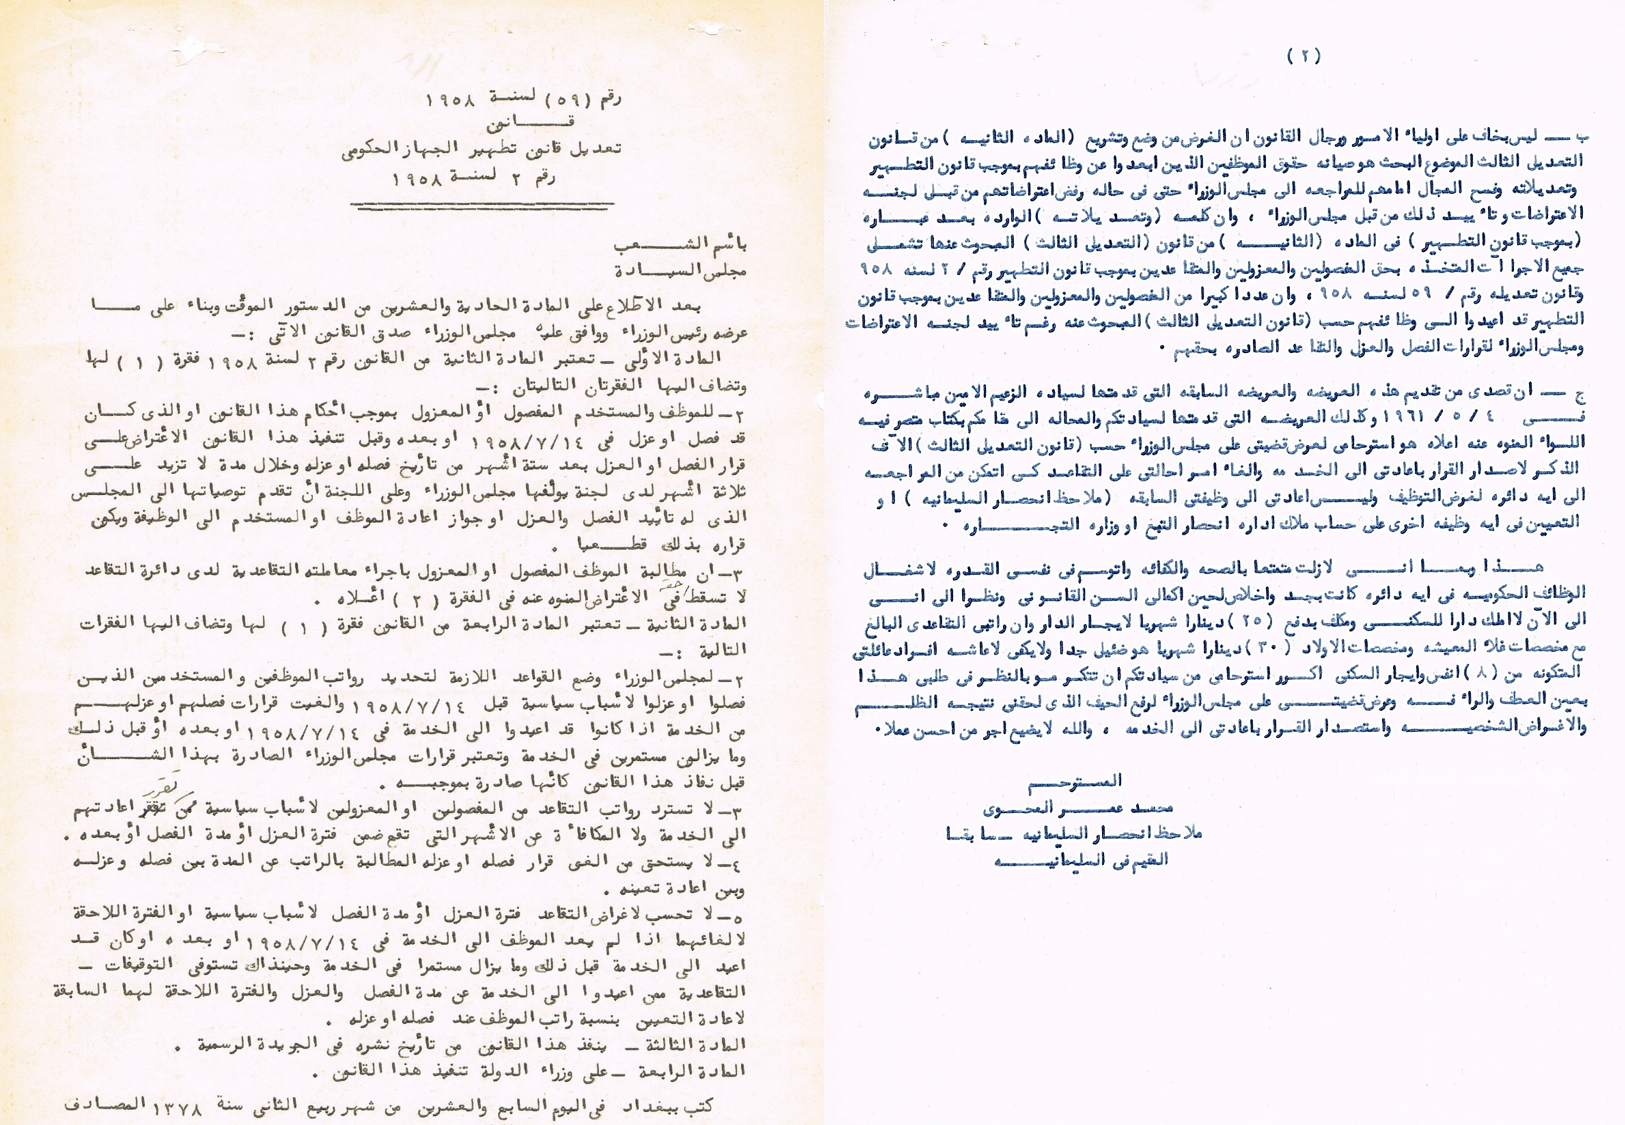 رقم (٥٩) لسنة ١٩٥٨
قانون
تعديل قانون تطهير الجهاز الحكومى
رقم ٢ لسنة ١٩٥٨
بأسم الشعب
مجلس السيادة
بعد الاطلاع على المادة الحادية والعشرين من الدستور الموقت وبناء على ما
عرضه رئيس الوزراء ووافق عليه مجلس الوزراء صدق القانون الاتى :-
المادة الاولى - تعتبر المادة الثانية من القانون رقم ٢ لسنة ١٩٥٨ فقرة (١) لها
وتضاف اليها الفقرتان التاليتان :-
٢- للموظف والمستخدم المفصول او المعزول بموجب احكام هذا القانون او الذى كان
قد فصل او عزل فى ١٩٥٨/٧/١٤ او بعده وقبل تنفيذ هذا القانون الاعتراض على
قرار الفصل او العزل بعد ستة اشهر من تأريخ فصله او عزله وخلال مدة لا تزيد على
ثلاثة اشهر لدى لجنة يولفها مجلس الوزراء وعلى اللجنة أن تقدم توصياتها الى المجلس
الذى له تأييد الفصل والعزل او جواز اعادة الموظف او المستخدم الى الوظيفة ويكون
قراره بذلك قطعيا .
٣- ان مطالبة الموظف المفصول او المعزول باجراء معاملته التقاعدية لدى دائرة التقاعد
لا تسقط حقه فى الاعتراض المنوه عنه فى الفقرة (٢) اعلاه .
المادة الثانية - تعتبر المادة الرابعة من القانون فقرة (١) لها وتضاف اليها الفقرات
التالية :-
٢- لمجلس الوزراء وضع القواعد اللازمة لتحديد رواتب الموظفين والمستخدمين الذين
فصلوا او عزلوا لأسباب سياسية قبل ١٩٥٨/٧/١٤ والغيت قرارات فصلهم او عزلهم
من الخدمة اذا كانوا قد اعيدوا الى الخدمة فى ١٩٥٨/٧/١٤ او بعده أو قبل ذلك
وما يزالون مستمرين فى الخدمة وتعتبر قرارات مجلس الوزراء الصادرة بهذا الشأن
قبل نفاذ هذا القانون كأنها صادرة بموجبه .
٣- لا تسترد رواتب التقاعد من المفصولين او المعزولين لاسباب سياسية ممن تقرر اعادتهم
الى الخدمة ولا المكافأة عن الاشهر التى تقع ضمن فترة العزل او مدة الفصل أو بعده .
٤- لا يستحق من الغى قرار فصله او عزله المطالبة بالراتب عن المدة بين فصله وعزله
وبين اعادة تعينه .
٥- لا تحسب لاغراض التقاعد فترة العزل او مدة الفصل لاسباب سياسية او الفترة اللاحقة
لالغائهما اذا لم يعد الموظف الى الخدمة فى ١٩٥٨/٧/١٤ او بعده او كان قد
اعيد الى الخدمة قبل ذلك وما يزال مستمرا فى الخدمة وحينذاك تستوفى التوقيفات -
التقاعدية ممن اعيدوا الى الخدمة عن مدة الفصل والعزل والفترة اللاحقة لهما السابقة
لاعادة التعيين بنسبة راتب الموظف عند فصله او عزله .
المادة الثالثة - ينفذ هذا القانون من تأريخ نشره فى الجريدة الرسمية .
المادة الرابعة - على وزراء الدولة تنفيذ هذا القانون .
كتب ببغداد فى اليوم السابع والعشرين من شهر ربيع الثانى سنة ١٣٧٨ المصادف
(٢)
ب - ليس بخاف على اولياء الامور ورجال القانون ان الغرض من وضع وتشريع (الماده الثانيه) من قانون
التعديل الثالث الموضوع البحث هو صيانه حقوق الموظفين الذين ابعدوا عن وظائفهم بموجب قانون التطهير
وتعديلاته وفسح المجال امامهم للمراجعه الى مجلس الوزراء حتى فى حاله رفض اعتراضاتهم من قبل لجنه
الاعتراضات وتاييد ذلك من قبل مجلس الوزراء ، وان كلمه (وتعديلاته) الوارده بعد عباره
(بموجب قانون التطهير) فى الماده (الثانيه) من قانون (التعديل الثالث) المبحوث عنها تشمل
جميع الاجراآت المتخذه بحق المفصولين والمعزولين والمتقاعدين بموجب قانون التطهير رقم / ٢ لسنه ٩٥٨
وقانون تعديله رقم / ٥٩ لسنه ٩٥٨ ، وان عددا كبيرا من المفصولين والمعزولين والمتقاعدين بموجب قانون
التطهير قد اعيدوا الى وظائفهم حسب (قانون التعديل الثالث) المبحوث عنه رغم تاييد لجنه الاعتراضات
ومجلس الوزراء لقرارات الفصل والعزل والتقاعد الصادره بحقهم .
ج - ان قصدى من تقديم هذه العريضه والعريضه السابقه التى قدمتها لسياده الزعيم الامين مباشره
فى ٤ / ٥ / ١٩٦١ وكذلك العريضه التى قدمتها لسيادتكم والمحاله الى مقامكم بكتاب متصرفيه
اللواء المنوه عنه اعلاه هو استرحامى لعرض قضيتى على مجلس الوزراء حسب (قانون التعديل الثالث) الآنف
الذكر لاصدار القرار باعادتى الى الخدمه والغاء امر احالتى على التقاعد كى اتمكن من المراجعه
الى ايه دائره لغرض التوظيف وليس اعادتى الى وظيفتى السابقه (ملاحظ انحصار السليمانيه) او
التعيين فى ايه وظيفه اخرى على حساب ملاك اداره انحصار التبغ او وزاره التجاره .
هذا وبما انى لازلت متمتعا بالصحه والكفائه واتوسم فى نفسى القدره لاشغال
الوظائف الحكوميه فى ايه دائره كانت بجد واخلاص لحين اكمالى السن القانونى ونظرا الى انى
الى الآن لااملك دارا للسكنى ومكلف بدفع (٢٥) دينارا شهريا لايجار الدار وان راتبى التقاعدى البالغ
مع مخصصات غلاء المعيشه ومخصصات الاولاد (٣٠) دينارا شهريا هو ضئيل جدا ولايكفى لاعاشه افراد عائلتى
المتكونه من (٨) انفس وايجار السكنى اكرر استرحامى من سيادتكم ان تتكرموا بالنظر فى طلبى هذا
بعين العطف والرافه وعرض قضيتى على مجلس الوزراء لرفع الحيف الذى لحقنى نتيجه الظلم
والاغراض الشخصيه واستصدار القرار باعادتى الى الخدمه ، والله لايضيع اجر من احسن عملا .
المسترحم
محمد عمر المحوى
ملاحظ انحصار السليمانيه - سابقا
المقيم فى السليمانيه